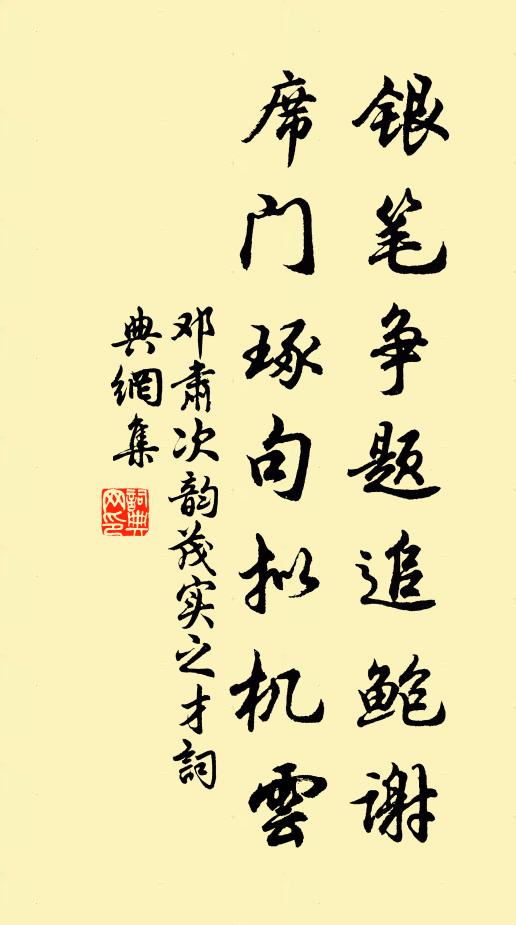 银笔争题追鲍谢
席门琢句拟机雲
邓肃次韵茂实之才詞
典網集
詞典
网印